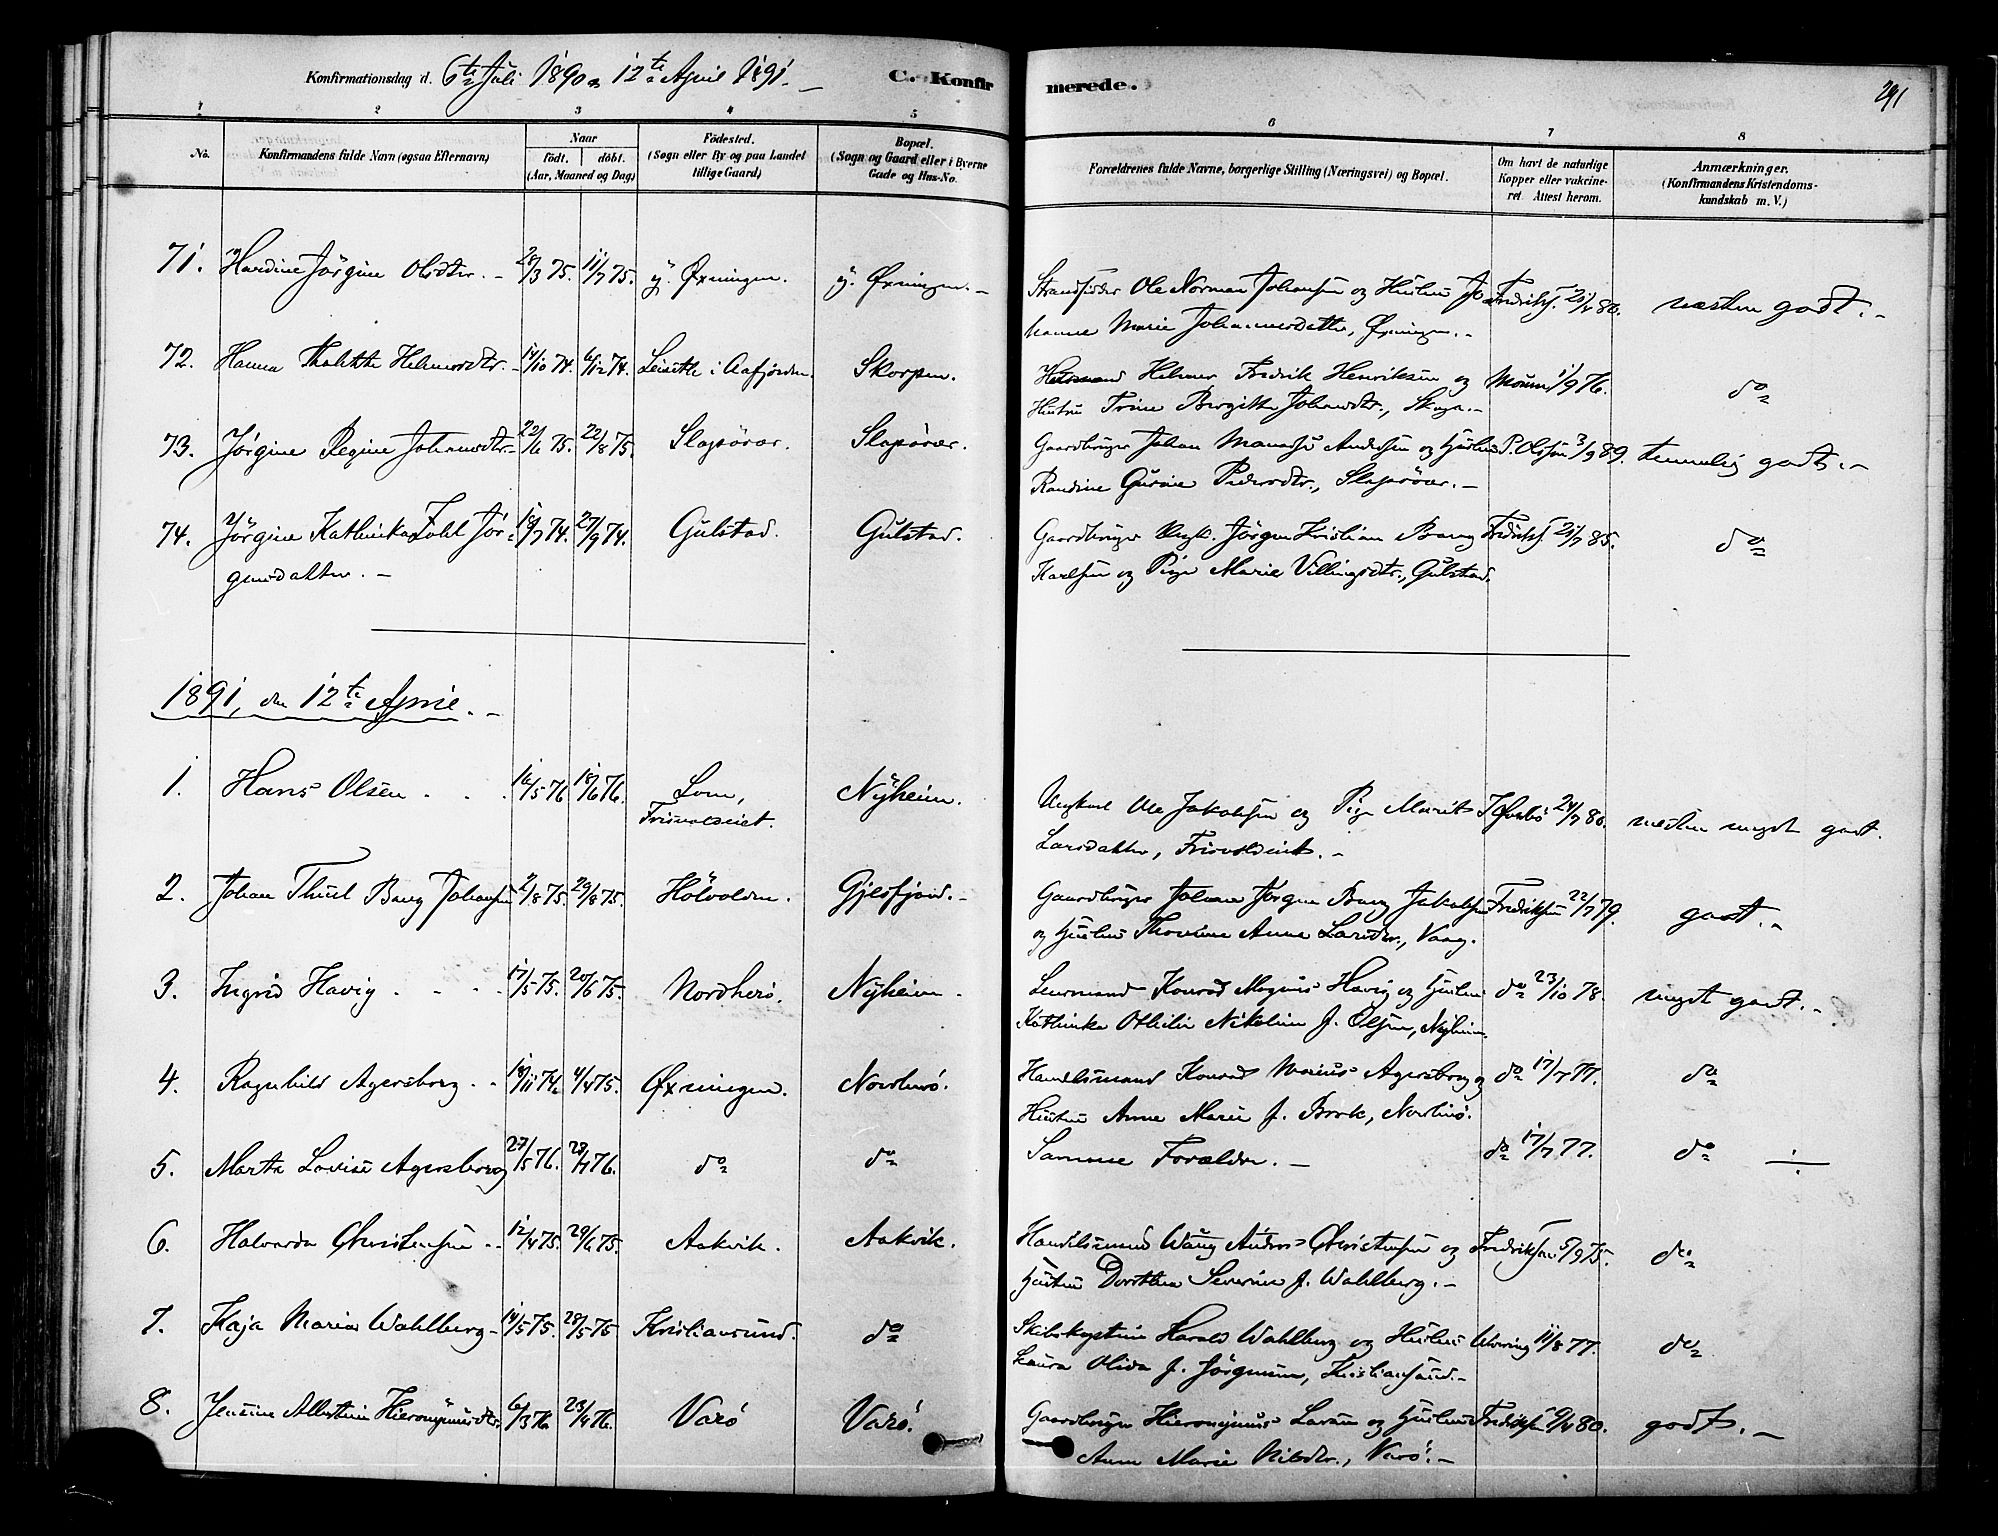 Konfirmationsdag d. 6te Juli 1890 12te April 1891. C. Konfirmerede. 291
1 2 3 4 5 6 7 8
No. Konfirmandens fulde Navn (ogsaa Efternavn) Naar födt. döbt. (Aar, Maaned og Dag) Födested. (Sogn eller By og paa Landet tillige Gaard) Bopæl. (Sogn og Gaard eller i Byerne Gade og Hus-No. Forældrenes fulde Navne, borgerlige Stilling (Næringsvei) og Bopæl. Om havt de naturlige Kopper eller vakcineret Attest herom. Anmærkninger. (Konfirmandens Kristendomskundskab m. V.)
71. Hardine Jörgine Olsdtr. 28/3 75. 11/7 75. y. Øxningen. y. Øxningen. Strandsidder Ole Norman Johansen og Hustru Jo- Fredriks. 21/7 80. næsten godt.
hanne Marie Johannesdatter, Øxningen.
72. Hanna Helmersdtr. 14/10 74. 6/12 74. i Aafjorden. Skorpen. Helmer Fredrik Henriksen og 1/9 76. do
Hustru Trine Bergitte Johansdtr.,
73. Jörgine Regine Johansdtr. 22/6 75. 22/8 75. Slapövær. Slapövær. Gaardbruger Johan Andersen og Hustru P. Olssen 3/9 89. temmelig godt.
Randine Gurine Pedersdtr., Slapövær.
74. Jörgine Kathinka Jör- 18/7 74. 27/9 74. Gulstad. Gulstad. Gaardbruger Ungk. Jörgen Kristian Bang Fredriks. 21/7 85. do
gensdatter. Karlsen og Pige Marie Villingsdtr., Gulstad.
1891, den 12te April.
1. Hans Olsen 16/5 76 18/6 76. Lom, Nÿheim. Ungkarl Ole Jakobsen og Pige Marit 24/7 80. næsten meget godt.
Frisvoldseiet. Larsdatter, Frisvoldeiet.
2. Johan Thuel Bang Johansen 2/8 75. 29/8 75. Hölvolden. Gjelsfjord. Gaardbruger Johan Jörgen Bang Jakobsen Fredriksen 22/7 79. godt.
og Hustru Anne Larsdtr., Vaag.
3. Ingrid Havig 17/5 75. 20/6 75. Nordherö. Nÿheim. Lensmand Konrad Magnus Havig og Hustru do 23/10 78. meget godt.
Kathinka Ottilie Nikoline f. Olsen, Nÿheim.
4. Ragnhild Agersborg 18/11 74. 4/4 75. Øxningen. Nordherö. Handelsmand Konrad Marius Agersborg og do 17/7 77. do
Hustru Anne Marie f. Brok, Nordherö.
5. Marta Lovise Agersborg 27/5 76. 23/7 76. do do Samme Forældre. do 17/7 77. do ÷
6. Halvarda Christensen 12/4 75. 29/6 75. Aakvik. Aakvik. Handelsmand Wang Andres Christensen og Fredriksen 5/9 75. do
Hustru Dorothea Severine f. Wahlberg.
7. Kaja Maria Wahlberg 14/5 75. 28/5 75 Kristiansund. do Skibskaptein Harald Wahlberg og Hustru 11/8 77. do
Laura Oliva f. Jörgensen, Kristiansund.
8. Jensine Albertine Hieronÿmusdtr. 6/3 76 23/4 76. Varö Varö. Gaardbruger Hieronÿmus Larsen og Hustru Fredriksen 9/4 80. godt.
Anne Marie Nilsdtr., Varö.